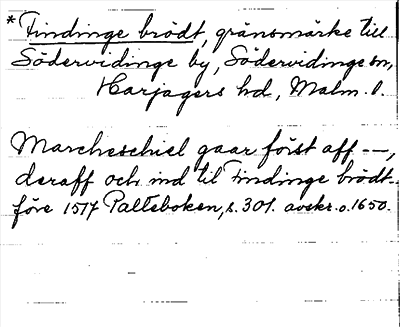 * Findinge brödt, gränsmärke till
Södervidinge by, Södervidinge sn,
Harjagers hd, Malm. l.
Marcheschiel gaar först aff – –,
deraff och ind til Findinge brödt.
före 1517 Palteboken, s. 301. avskr. o. 1650.